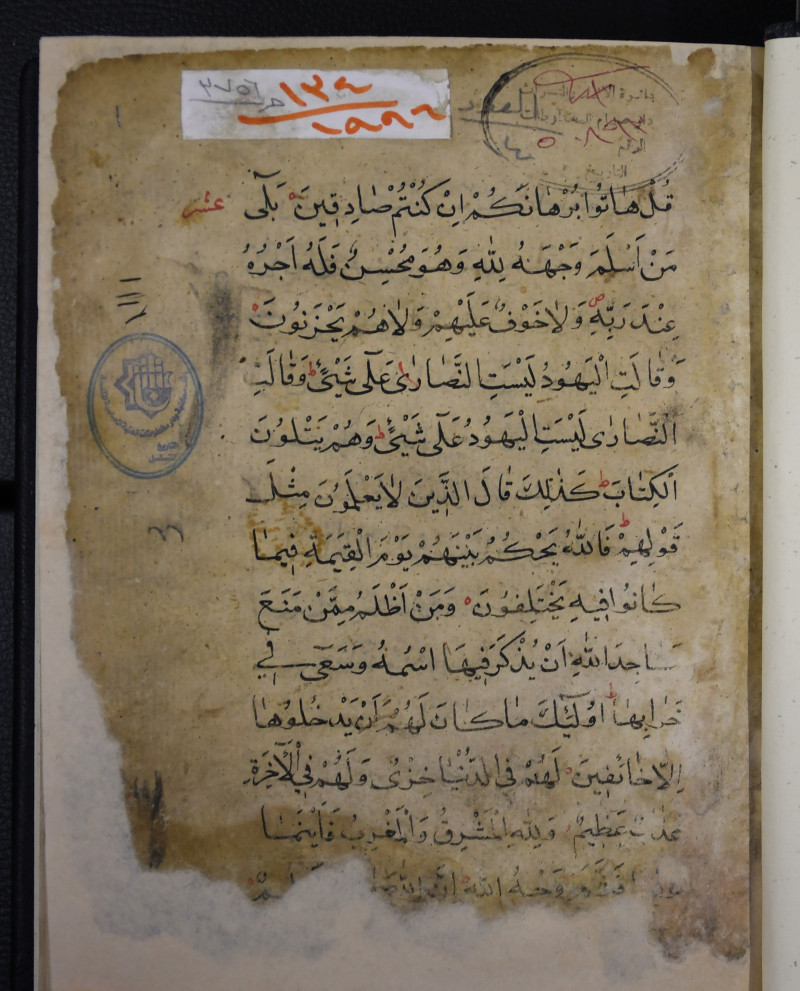 ١٣٩
١٩٩٩٦
قُلْ هَاتُوا بُرْهَانَكُمْ اِنْ كُنْتُمْ صَادِقِينَ بَلٰٓى
عشر
مَنْ اَسْلَمَ وَجْهَهُ لِلّٰهِ وَهُوَ مُحْسِنٌ فَلَهُ اَجْرُهُ
عِنْدَ رَبِّهِ وَلَاخَوْفٌ عَلَيْهِمْ وَلَاهُمْ يَحْزَنُونَ
وَقَالَتِ الْيَهُودُ لَيْسَتِ النَّصَارٰى عَلٰى شَيْئٍ وَقَالَتِ
النَّصَارٰى لَيْسَتِ الْيَهُودُ عَلٰى شَيْئٍ وَهُمْ يَتْلُونَ
الْكِتَابَ كَذٰلِكَ قَالَ الَّذِينَ لَايَعْلَمُونَ مِثْلَ
قَوْلِهِمْ فَاللّٰهُ يَحْكُمُ بَيْنَهُمْ يَوْمَ الْقِيٰمَةِ فِيمَا
كَانُوا فِيهِ يَخْتَلِفُونَ وَمَنْ اَظْلَمُ مِمَّنْ مَنَعَ
مَسَاجِدَ اللّٰهِ اَنْ يُذْكَرَ فِيهَا اسْمُهُ وَسَعٰى فِي
خَرَابِهَا اُولٰٓئِكَ مَاكَانَ لَهُمْ اَنْ يَدْخُلُوهَا
اِلَّا خَائِفِينَ لَهُمْ فِي الدُّنْيَا خِزْيٌ وَلَهُمْ فِي الْاٰخِرَةِ
عَذَابٌ عَظِيمٌ وَلِلّٰهِ الْمَشْرِقُ وَالْمَغْرِبُ فَاَيْنَمَا
فَثَمَّ وَجْهُ اللّٰهِ اِنَّ اللّٰهَ